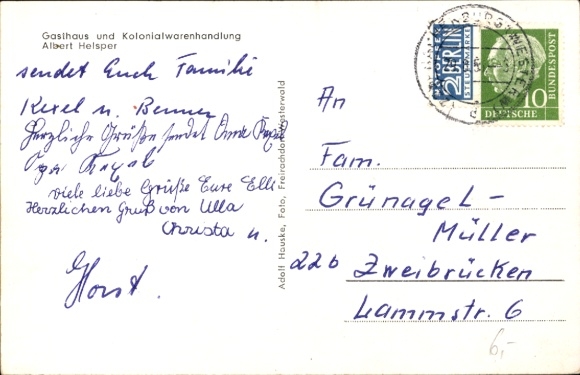 Gasthaus und Kolonialwarenhandlung
Albert Helsper
sendet Euch Familie
Kexel u.
Herzliche Grüße sendet Anna
viele liebe Grüße Eure Elli
Herzlichen Gruß von Ulla
Christa u.
Horst.
Adolf Hauske, Foto, Freirachdorf, Westerwald
2 BERLIN
STEUERMARKE
NOTOPFER
10
DEUTSCHE
BUNDESPOST
An
Fam.
Grünagel-
Müller
22b Zweibrücken
Lammstr. 6
6,-